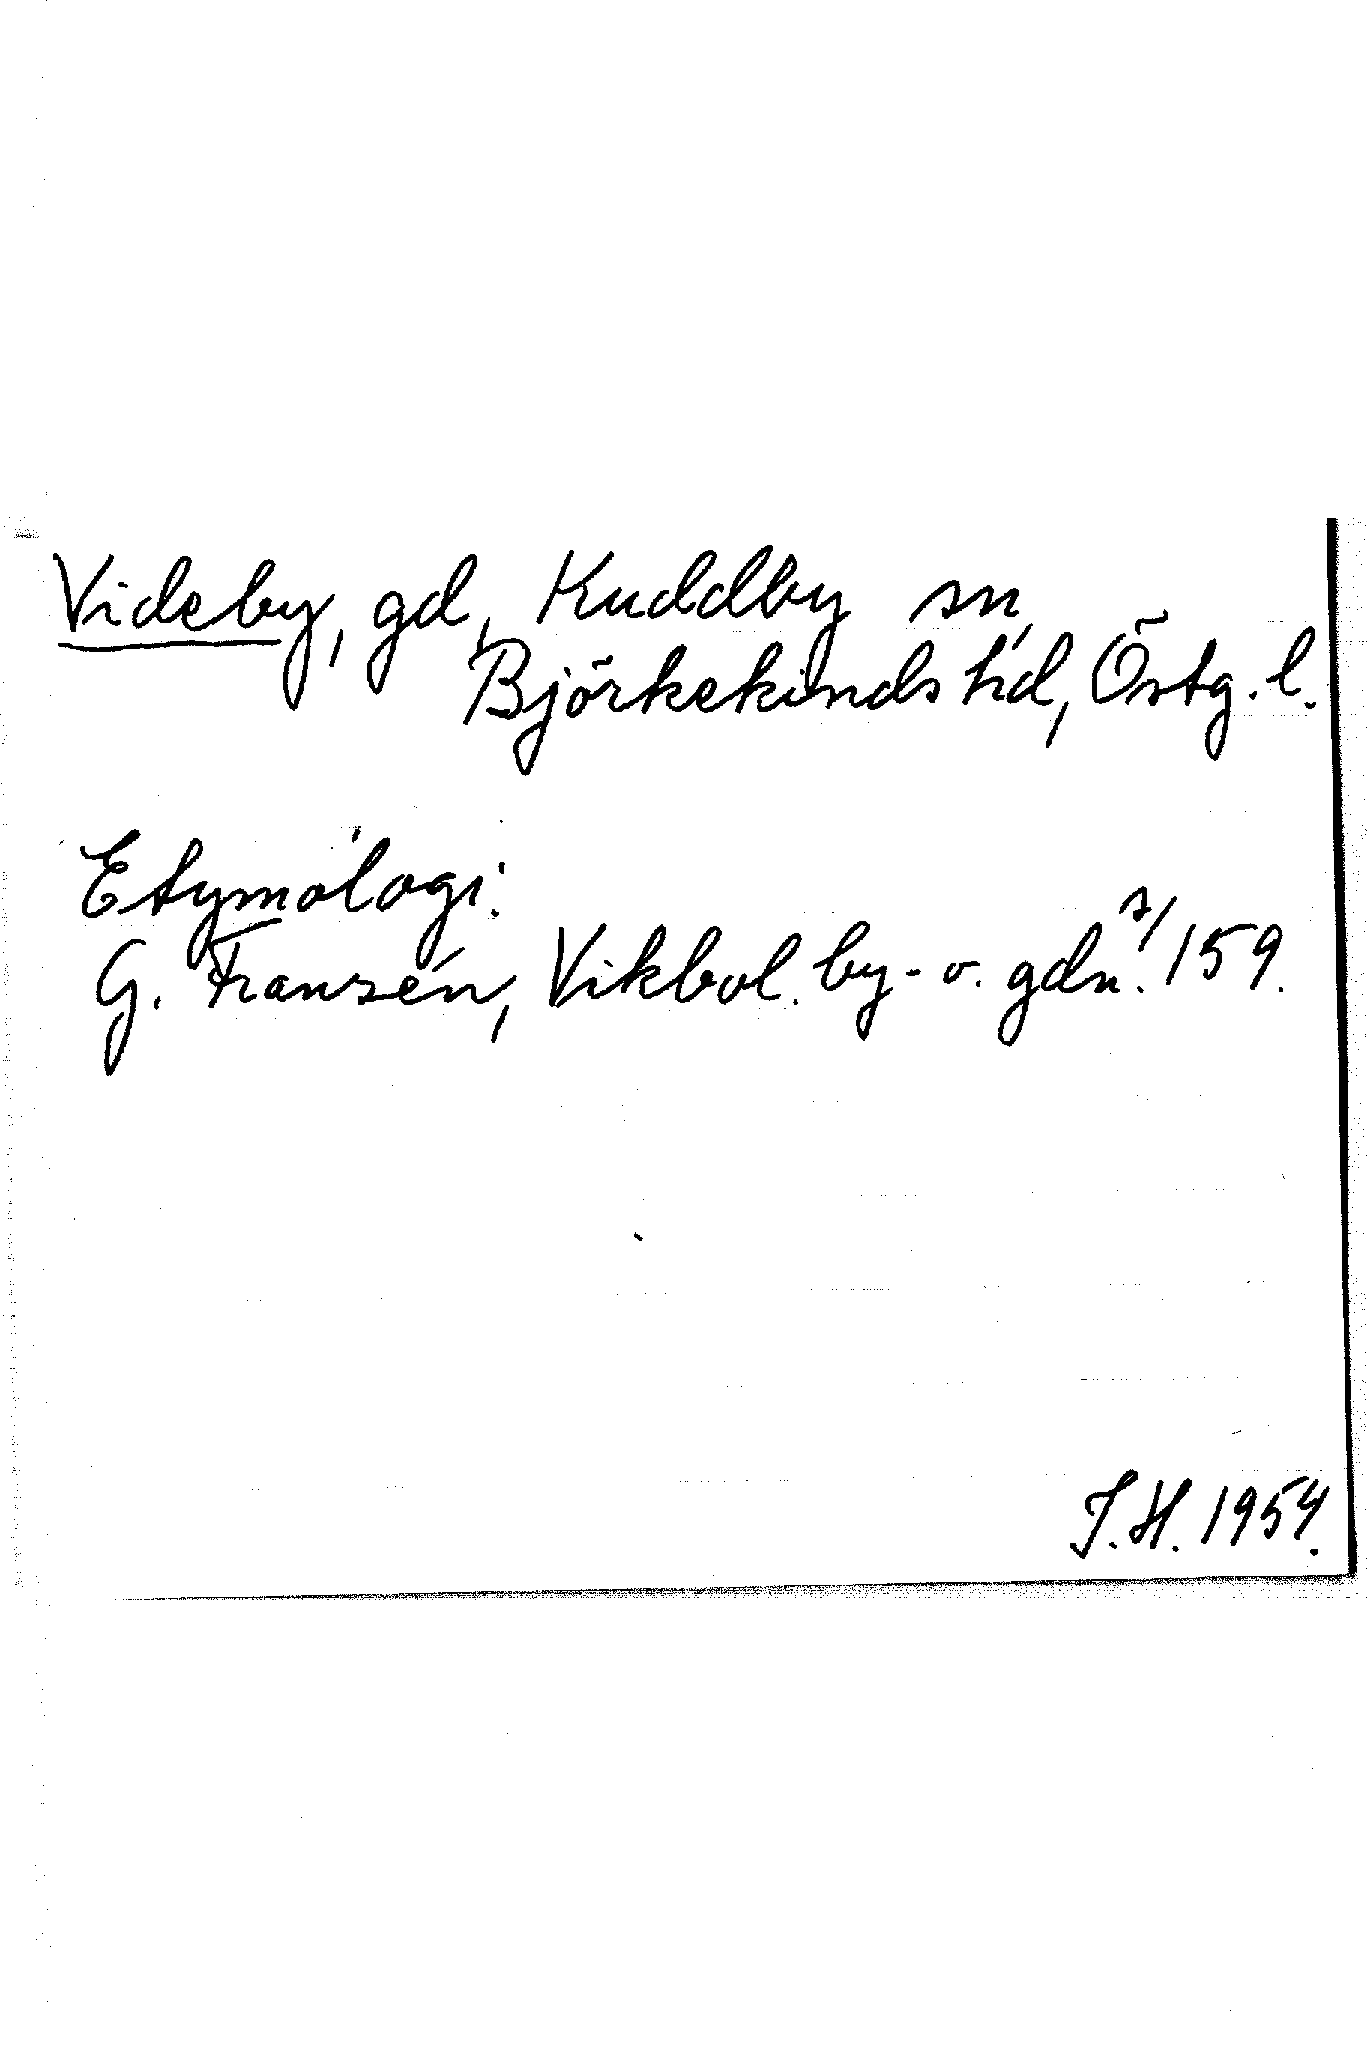 Videby, gd, Kuddby sn,
Björkekinds hd, Östg. l.
Etymologi:
G. Franzén, Vikbol. by- o. gdn. s/ 159.
J.H. 1954.